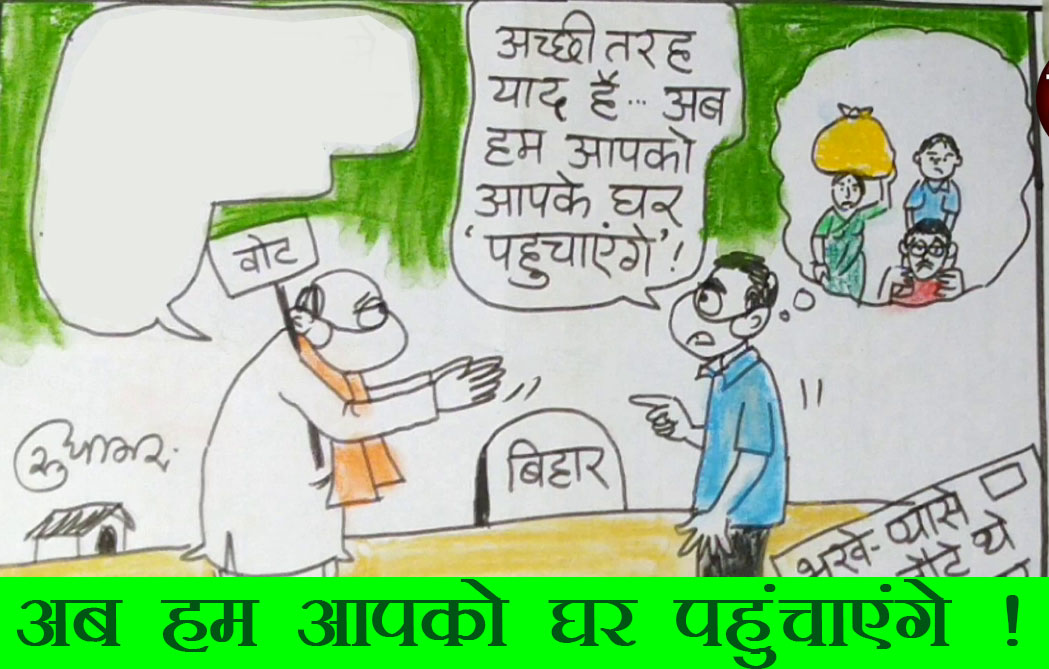 अच्छी तरह
याद है... अब
हम आपको
आपके घर
'पहुचाएंगे'!
वोट
सुधाकर
बिहार
भूखे-प्यासे
लौटे थे
अब हम आपको घर पहुंचाएंगे !